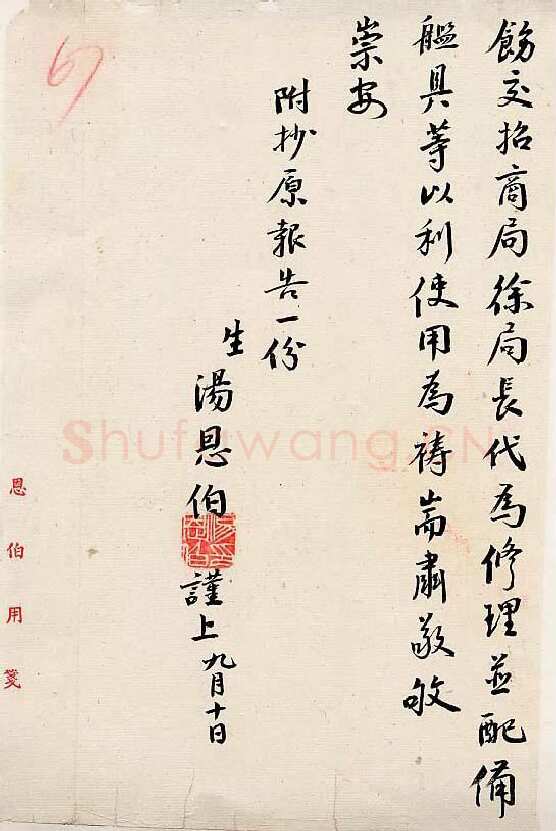 飭交招商局徐局長代為修理並配備
艦具等以利使用為禱耑肅敬敂
崇安
附抄原報告一份
生 湯恩伯 謹上 九月十日
恩伯用箋
67
Shufawang.CN